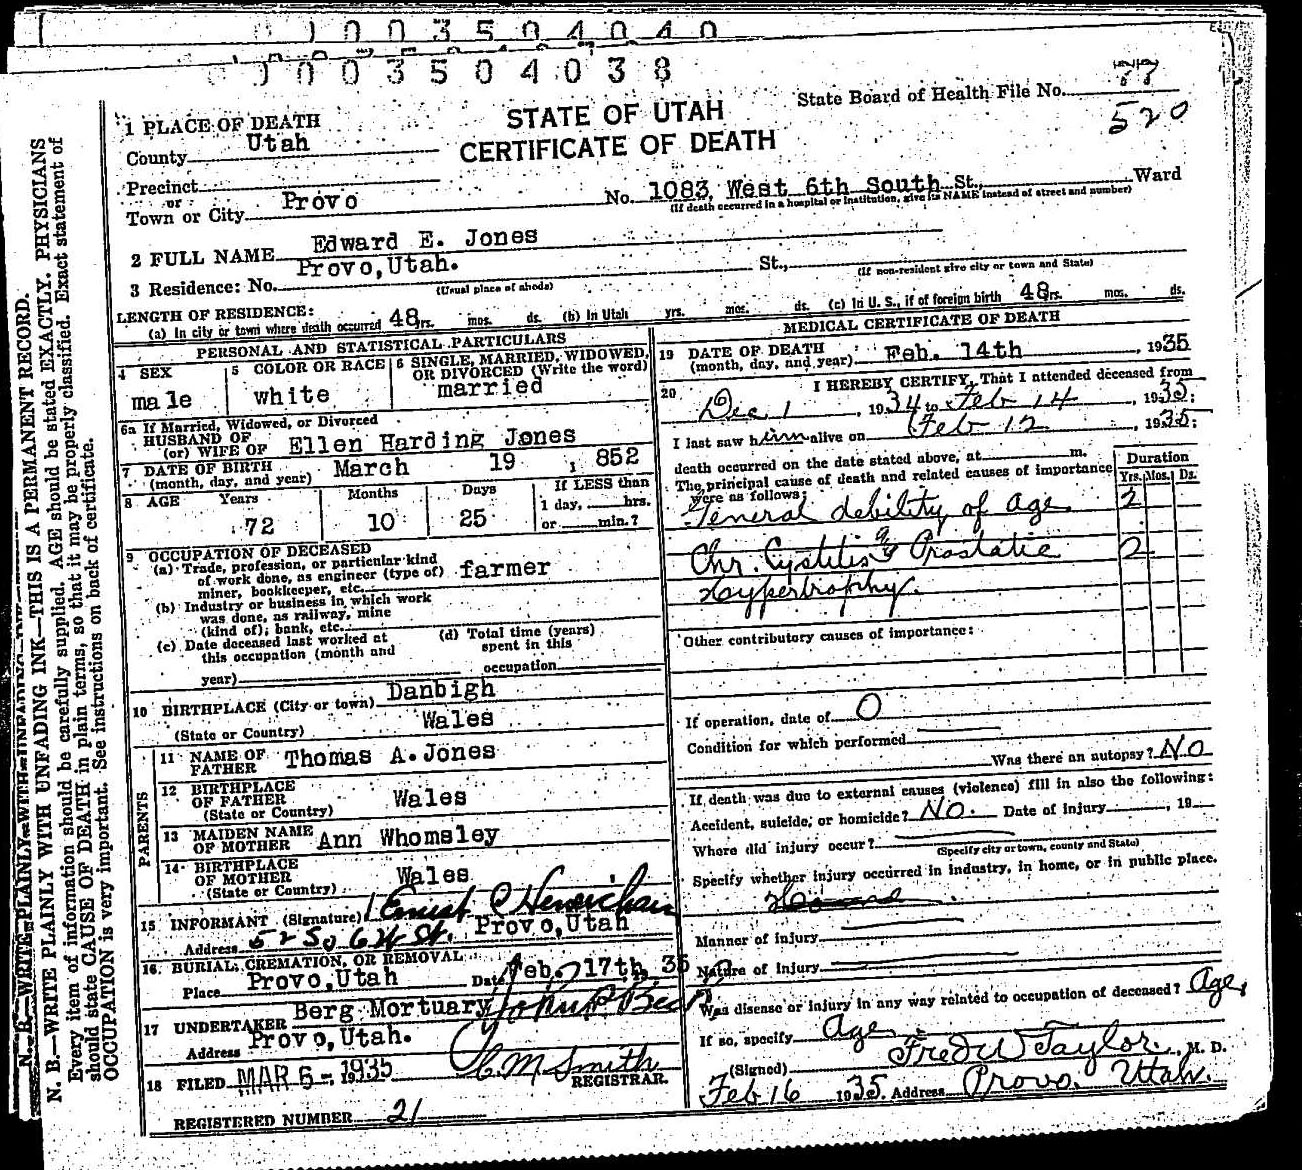 0003504040
0003504038
State Board of Health File No. 77
520
STATE OF UTAH
CERTIFICATE OF DEATH
1 PLACE OF DEATH
County Utah
Precinct
or
Town or City Provo No. 1083, West 6th South St., Ward
(If death occurred in a hospital or institution, give its NAME instead of street and number)
2 FULL NAME Edward E. Jones
3 Residence: No. Provo, Utah. St.,
(Usual place of abode) (If non-resident give city or town and State)
LENGTH OF RESIDENCE:
(a) In city or town where death occurred 48 yrs. mos. ds. (b) In Utah yrs. mos. ds. (c) In U. S., if of foreign birth 48 yrs. mos. ds.
PERSONAL AND STATISTICAL PARTICULARS
4 SEX male
5 COLOR OR RACE white
6 SINGLE, MARRIED, WIDOWED,
OR DIVORCED (Write the word)
married
6a If Married, Widowed, or Divorced
HUSBAND OF
(or) WIFE OF Ellen Harding Jones
7 DATE OF BIRTH
(month, day, and year) March 19 1 852
8 AGE Years Months Days If LESS than
1 day, hrs.
72 10 25 or min.?
9 OCCUPATION OF DECEASED
(a) Trade, profession, or particular kind
of work done, as engineer (type of)
miner, bookkeeper, etc. farmer
(b) Industry or business in which work
was done, as railway, mine
(kind of); bank, etc.
(c) Date deceased last worked at
this occupation (month and
year)
(d) Total time (years)
spent in this
occupation
10 BIRTHPLACE (City or town) Danbigh
(State or Country) Wales
PARENTS
11 NAME OF
FATHER Thomas A. Jones
12 BIRTHPLACE
OF FATHER
(State or Country) Wales
13 MAIDEN NAME
OF MOTHER Ann Whomsley
14 BIRTHPLACE
OF MOTHER
(State or Country) Wales
15 INFORMANT (Signature) Ernest C
Address 52 So 6 W St. Provo, Utah
16. BURIAL, CREMATION, OR REMOVAL
Place Provo, Utah Date Feb. 17th, 35
17 UNDERTAKER Berg Mortuary
Address Provo, Utah.
18 FILED MAR 6 - 1935 C M Smith
REGISTRAR.
REGISTERED NUMBER 21
MEDICAL CERTIFICATE OF DEATH
19 DATE OF DEATH
(month, day, and year) Feb. 14th, 1935
20 I HEREBY CERTIFY, That I attended deceased from
Dec 1, 1934 to Feb 14, 1935:
I last saw him alive on Feb 12, 1935:
death occurred on the date stated above, at m.
The principal cause of death and related causes of importance
were as follows:
Duration
Yrs. Mos. Ds.
General debility of Age 2
Chr. Cystitis & Prostatic 2
Hypertrophy.
Other contributory causes of importance:
If operation, date of O
Condition for which performed
Was there an autopsy? No
If death was due to external causes (violence) fill in also the following:
Accident, suicide, or homicide? No. Date of injury , 19
Where did injury occur?
(Specify city or town, county and State)
Specify whether injury occurred in industry, in home, or in public place.
Manner of injury
Nature of Injury
Was disease or injury in any way related to occupation of deceased? Age,
If so, specify Age
(Signed) Fred W Taylor, M. D.
Feb 16 1935. Address Provo. Utah.
N. B.—WRITE PLAINLY WITH UNFADING INK—THIS IS A PERMANENT RECORD.
Every item of information should be carefully supplied. AGE should be stated EXACTLY. PHYSICIANS
should state CAUSE OF DEATH in plain terms, so that it may be properly classified. Exact statement of
OCCUPATION is very important. See instructions on back of certificate.